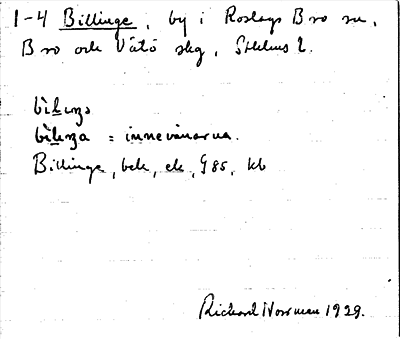 1-4 Billinge, by i Roslags Bro sn,
Bro och Vätö skg, Sthlms l.
bìlıŋə
bìlıŋa = innevånarna.
Billinge, bek, ek, G85, kb
Richard Norrman 1929.